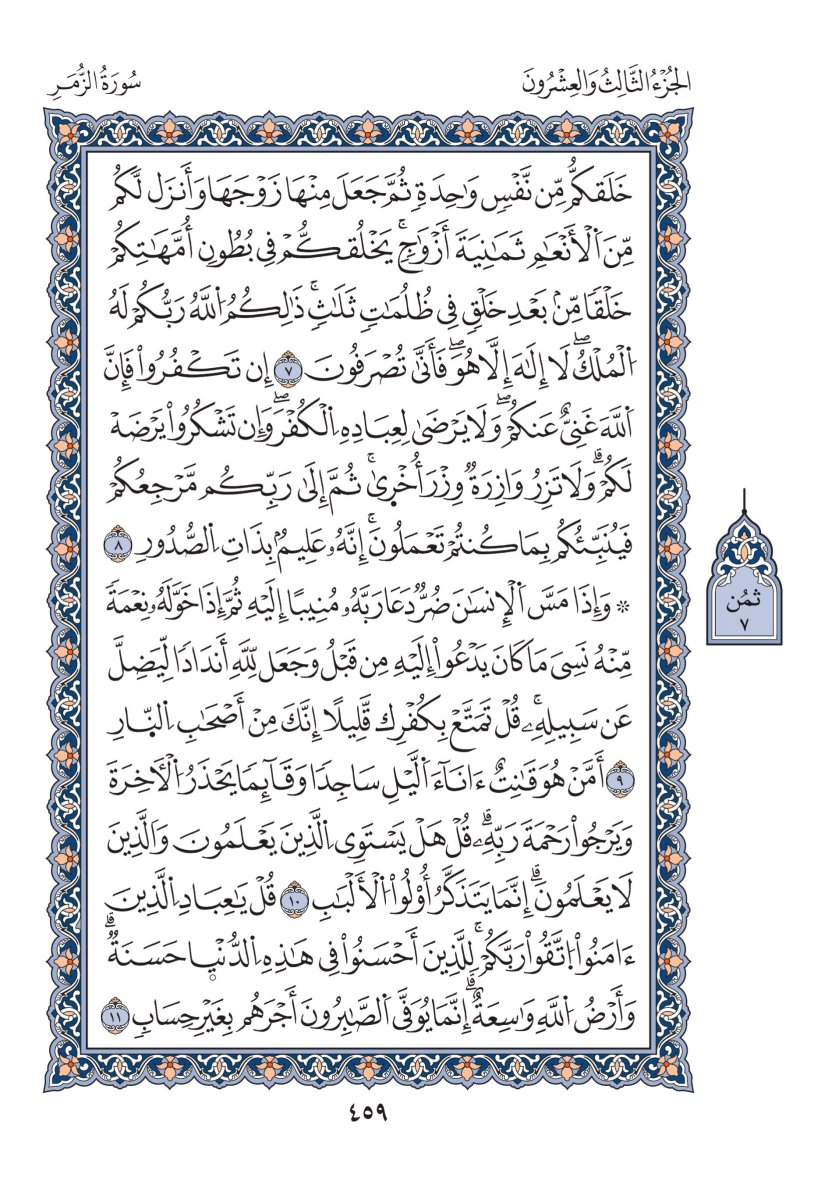 الجُزْءُ الثَّالِثُ وَالعِشْرُونَ
سُورَةُ الزُّمَرِ
خَلَقَكُم مِّن نَّفْسٖ وَٰحِدَةٖ ثُمَّ جَعَلَ مِنْهَا زَوْجَهَا وَأَنزَل لَّكُم
مِّنَ اَ۬لْأَنْعَٰمِ ثَمَٰنِيَةَ أَزْوَٰجٖۚ يَخْلُقكُّمْ فِي بُطُونِ أُمَّهَٰتِكُمْ
خَلْقٗا مِّنۢ بَعْدِ خَلْقٖ فِي ظُلُمَٰتٖ ثَلَٰثٖۚ ذَٰلِكُمُ اُ۬للَّهُ رَبُّكُمْ لَهُ
اُ۬لْمُلْكُۖ لَا إِلَٰهَ إِلَّا هُوَۖ فَأَنَّىٰ تُصْرَفُونَ ٧ إِن تَكْفُرُواْ فَإِنَّ
اَ۬للَّهَ غَنِيٌّ عَنكُمْۖ وَلَا يَرْضَىٰ لِعِبَادِهِ اِ۬لْكُفْرَۖ وَإِن تَشْكُرُواْ يَرْضَهْ
لَكُمْۗ وَلَا تَزِرُ وَازِرَةٞ وِزْرَ أُخْر۪ىٰۚ ثُمَّ إِلَىٰ رَبِّكُم مَّرْجِعُكُمْ
فَيُنَبِّئُكُم بِمَا كُنتُمْ تَعْمَلُونَۚ إِنَّهُۥ عَلِيمُۢ بِذَاتِ اِ۬لصُّدُورِ ٨
۞ وَإِذَا مَسَّ اَ۬لْإِنسَٰنَ ضُرّٞ دَعَا رَبَّهُۥ مُنِيبًا إِلَيْهِ ثُمَّ إِذَا خَوَّلَهُۥ نِعْمَةٗ
مِّنْهُ نَسِيَ مَا كَانَ يَدْعُواْ إِلَيْهِ مِن قَبْلُ وَجَعَل لِّلهِ أَندَادٗا لِّيَضِلَّ
عَن سَبِيلِهِۦۚ قُلْ تَمَتَّعْ بِكُفْرِك قَّلِيلًا إِنَّكَ مِنْ أَصْحَٰبِ اِ۬لنّ۪ارِ
٩ أَمَّنْ هُوَ قَٰنِتٌ ءَانَآءَ اَ۬لَّيْلِ سَاجِدٗا وَقَآئِمٗا يَحْذَرُ اُ۬لْأٓخِرَةَ
وَيَرْجُواْ رَحْمَةَ رَبِّهِۦۗ قُلْ هَلْ يَسْتَوِي اِ۬لَّذِينَ يَعْلَمُونَ وَالَّذِينَ
لَا يَعْلَمُونَۗ إِنَّمَا يَتَذَكَّرُ أُوْلُواْ اُ۬لْأَلْبَٰبِ ١٠ قُلْ يَٰعِبَادِ اِ۬لَّذِينَ
ءَامَنُواْ اُ۪تَّقُواْ رَبَّكُمْۚ لِلَّذِينَ أَحْسَنُواْ فِي هَٰذِهِ اِ۬لدُّنْي۪ا حَسَنَةٞۗ
وَأَرْضُ اُ۬للَّهِ وَٰسِعَةٌۗ إِنَّمَا يُوَفَّى اَ۬لصَّٰبِرُونَ أَجْرَهُم بِغَيْرِ حِسَابٖ ١١
ثُمُن
٧
٤٥٩